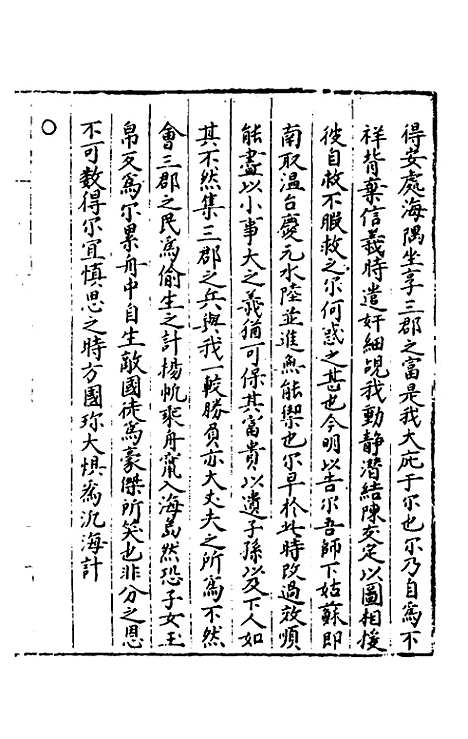 得安處海隅坐享三郡之富是我大庇于尔也尔乃自爲不
祥背棄信義時遣奸細覘我動静潛結陳友定以圖相援
彼自救不暇救之尔何惑之甚也今明以告尔吾師下姑蘇即
南取温台慶元水陸並進無能禦也尔早於此時改過效順
能盡以小事大之義猶可保其富貴以遺子孫以及下人如
其不然集三郡之兵與我一較勝負亦大丈夫之所爲不然
會三郡之民爲偷生之計揚帆乘舟竄入海島然恐子女玉
帛反爲尔累舟中自生敵國徒爲豪傑所笑也非分之恩
不可数得尔宜慎思之時方國珎大惧爲汎海計
○